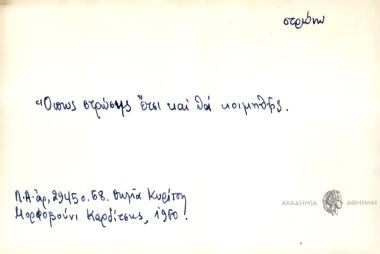 στρώνω
"Όπως στρώσης ἔτσι καί θά κοιμηθῆς.
Λ.Α. ἀρ. 2945 σ. 68.
Μορφοβούνι Καρδίτσης, 1960.
ΑΚΑΔΗΜΙΑ ΑΘΗΝΩΝ